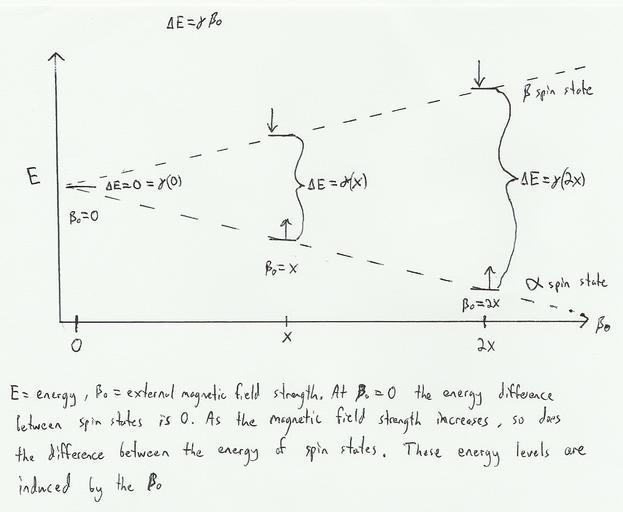 ΔE = γ β₀
E
β spin state
ΔE=0 = γ(0)
ΔE = γ(x)
ΔE = γ(2x)
β₀=0
β₀ = x
β₀=2x
α spin state
β₀
0
x
2x
E= energy, β₀ = external magnetic field strength. At β₀=0 the energy difference
between spin states is 0. As the magnetic field strength increases, so does
the difference between the energy of spin states. These energy levels are
induced by the β₀